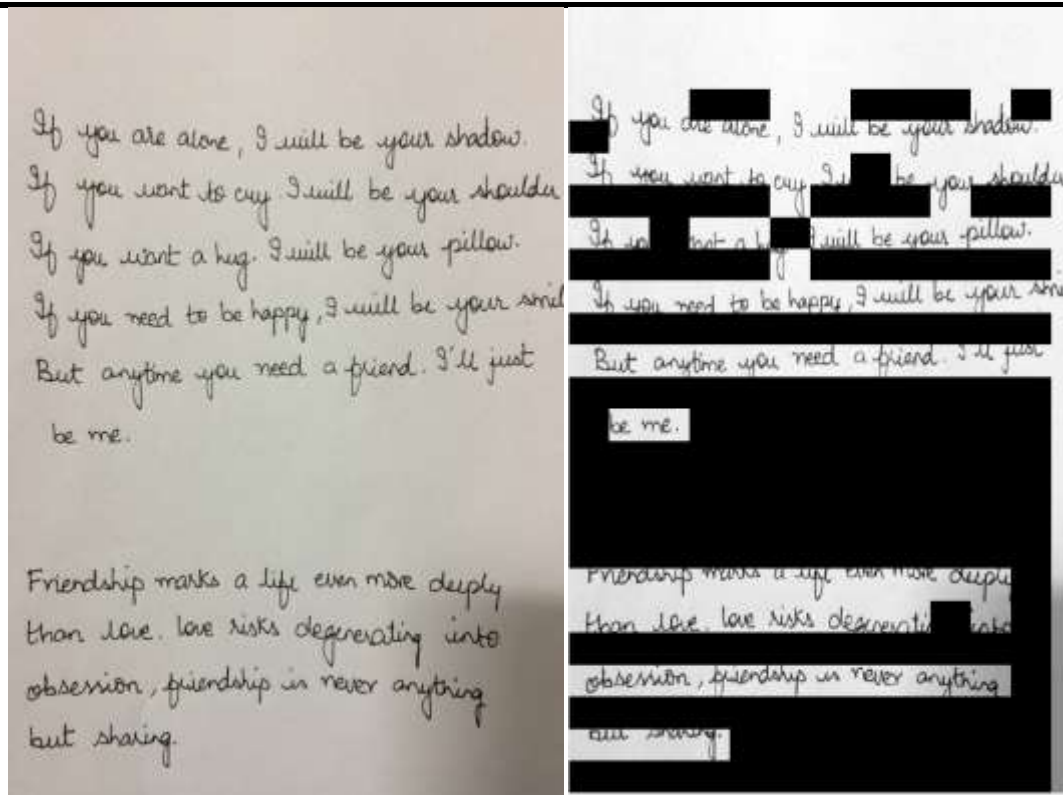 If you are alone, I will be your shadow.
If you want to cry I will be your shoulder
If you want a hug. I will be your pillow.
If you need to be happy, I will be your smil
But anytime you need a friend. I'll just
be me.
Friendship marks a life even more deeply
than love. love risks degenerating into
obsession, friendship is never anything
but sharing.
If you are alone, I will be your shadow.
If you want to cry be your
If a will be your pillow.
If you need to be happy, I will be your
But anytime you need a friend. I'll just
be me.
Friendship marks a life even more deeply
than love. love risks into
obsession, friendship is never anything
but sharing.